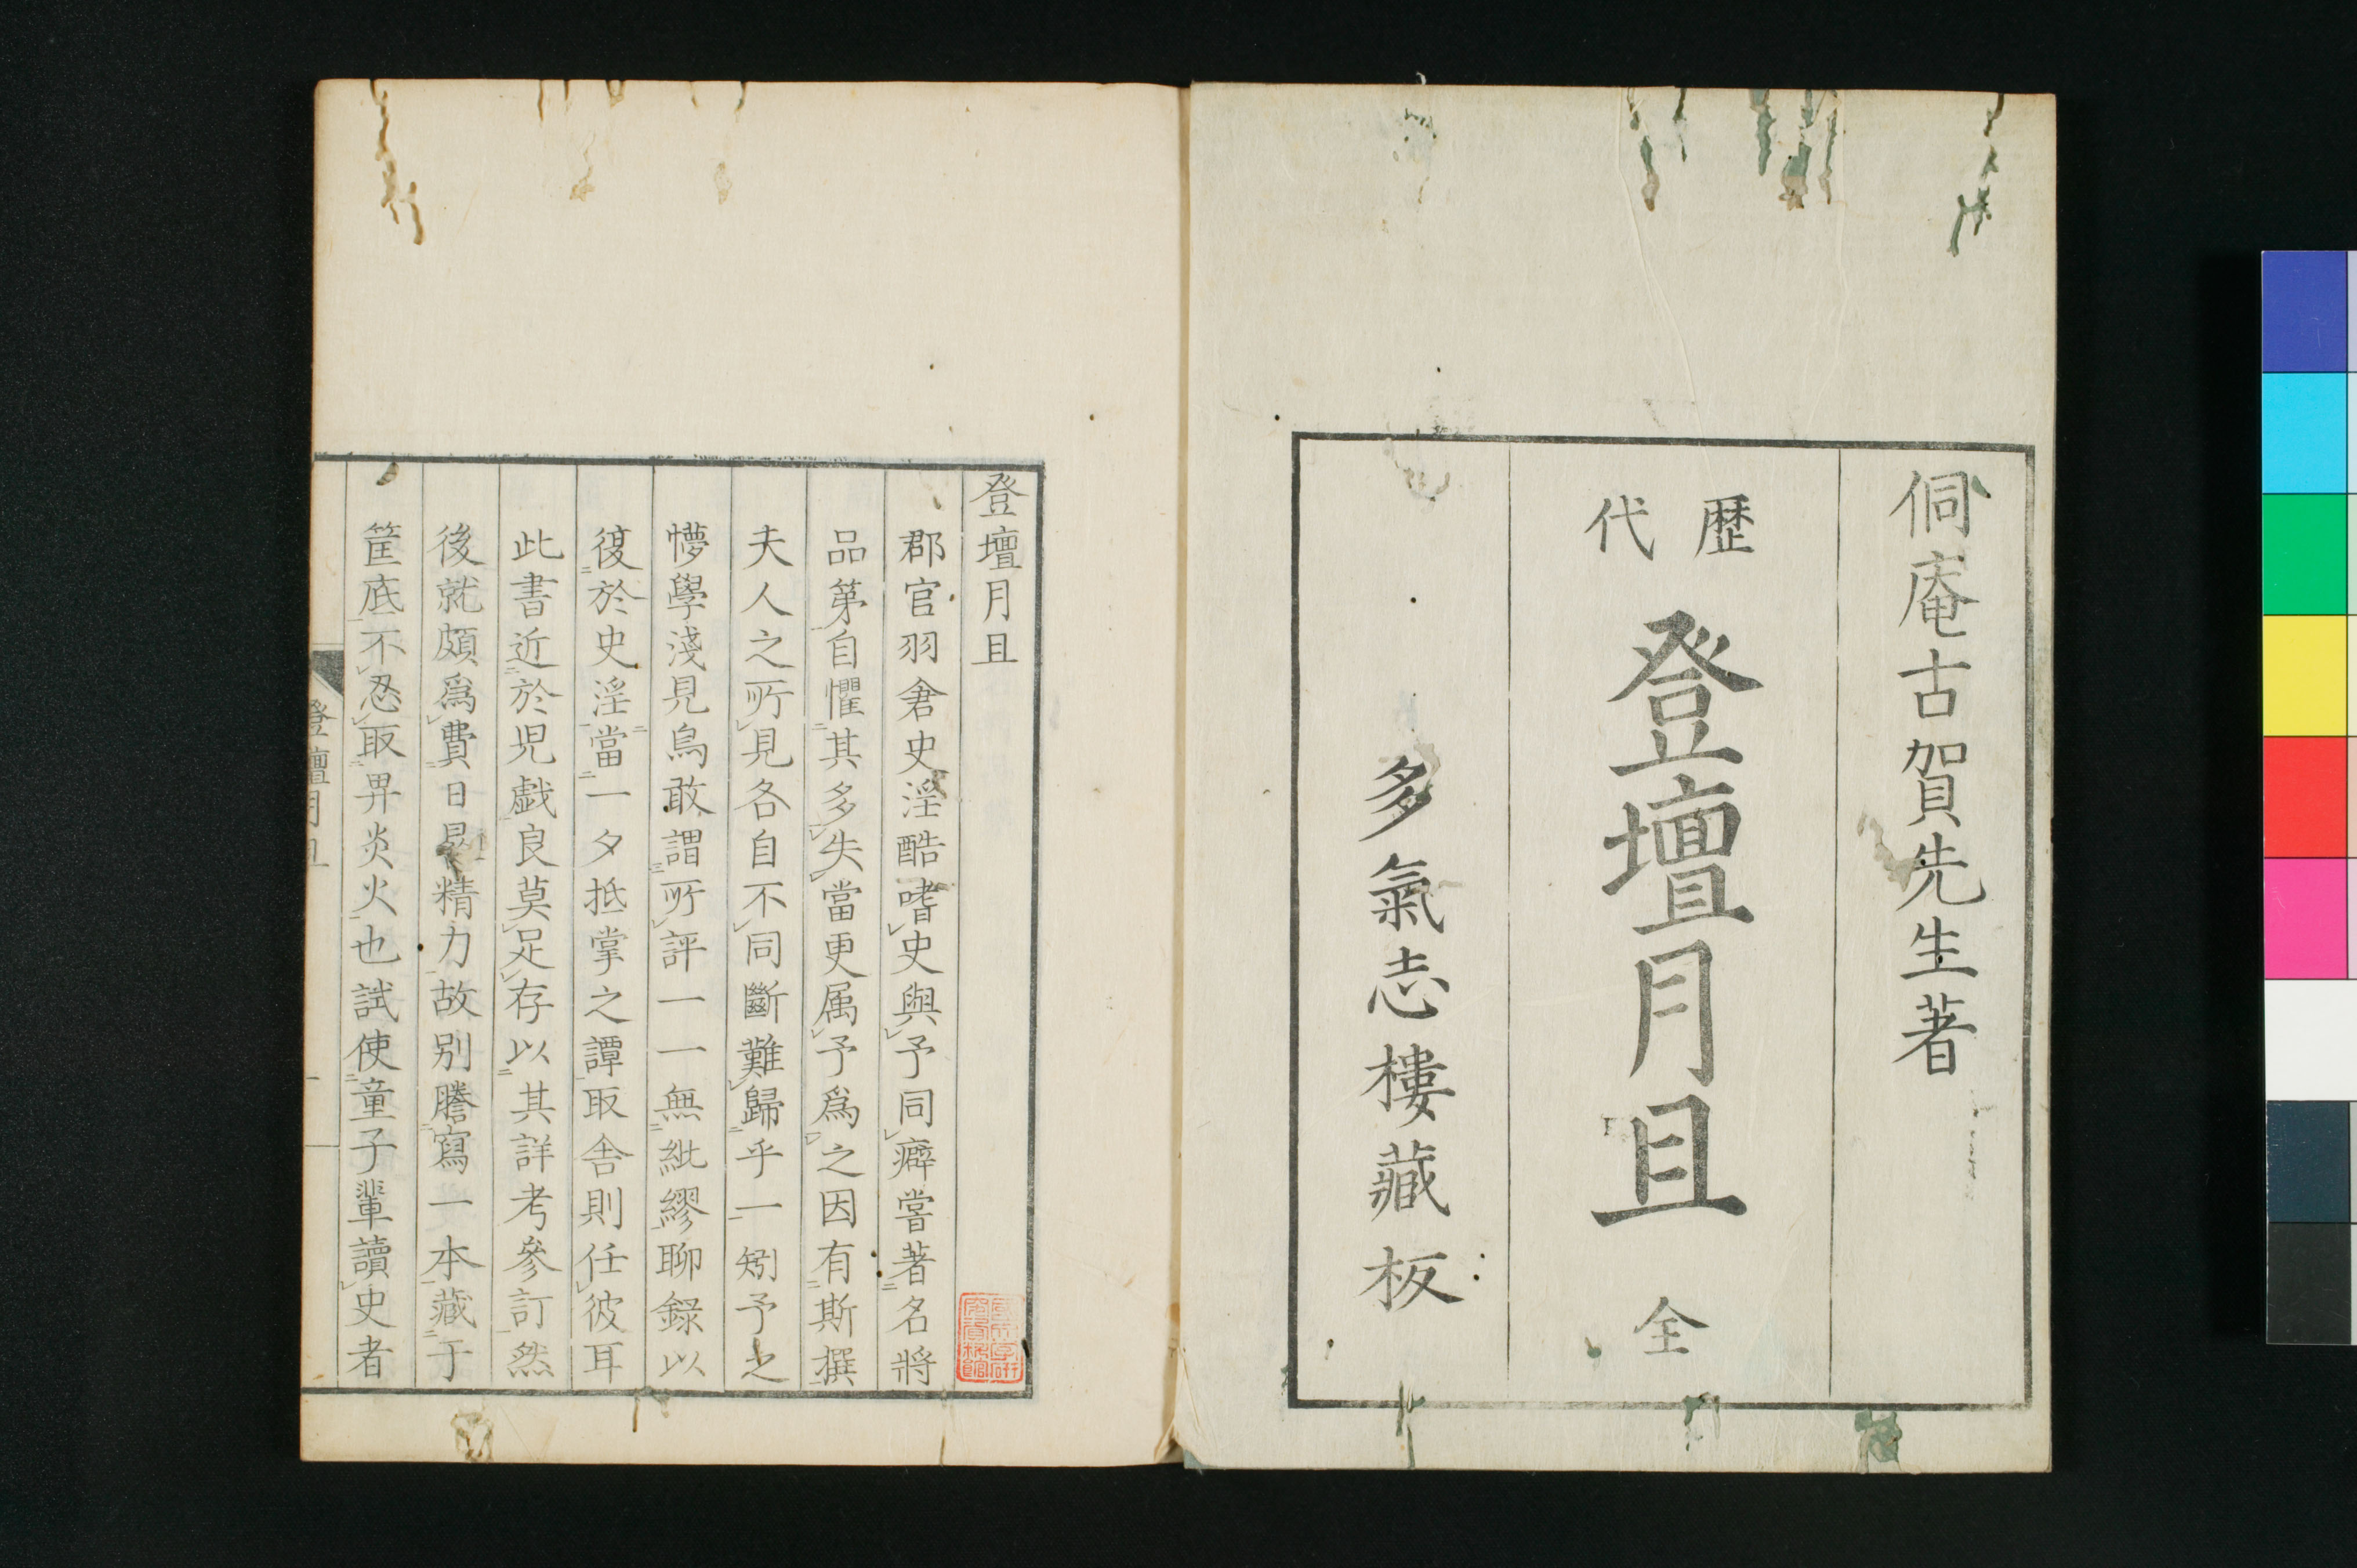 侗庵古賀先生著
歴代
登壇月旦 全
多氣志樓藏板
登壇月旦
郡官羽倉史淫酷嗜史與予同癖嘗著名將
品第自懼其多失當更属予爲之因有斯撰
夫人之所見各自不同斷難歸乎一矧予之
懵學淺見烏敢謂所評一一無紕繆聊録以
復於史淫當一夕抵掌之譚取舎則任彼耳
此書近於児戯良莫足存以其詳考參訂然
後就頗爲費日晷精力故別謄寫一本藏于
筐底不忍取畀炎火也試使童子輩讀史者
登壇月旦
一